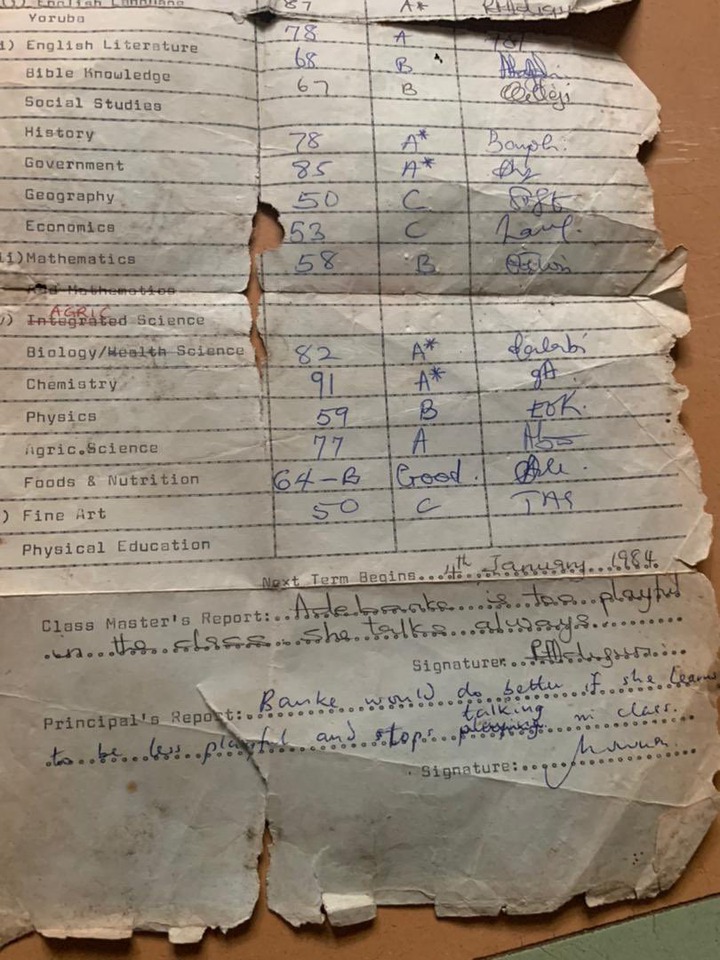 English Language 87 A*
Yoruba 78 A
i) English Literature 68 B
Bible Knowledge 67 B
Social Studies
History 78 A*
Government 85 A*
Geography 50 C
Economics 53 C
ii) Mathematics 58 B
Add Mathematics
AGRIC
v) Integrated Science
Biology/Health Science 82 A*
Chemistry 91 A*
Physics 59 B
Agric.Science 77 A
Foods & Nutrition 64-B Good.
) Fine Art 50 C
Physical Education
Next Term Begins...4th January 1984
Class Master's Report:..Adebanke is too playful
in the class she talks always.
Signature:
Principal's Report: Banke would do better if she learns
to be less playful and stops talking in class.
Signature: